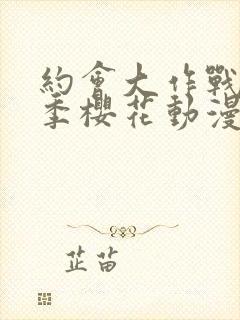 約會大作戰
季櫻花動漫
芷苗